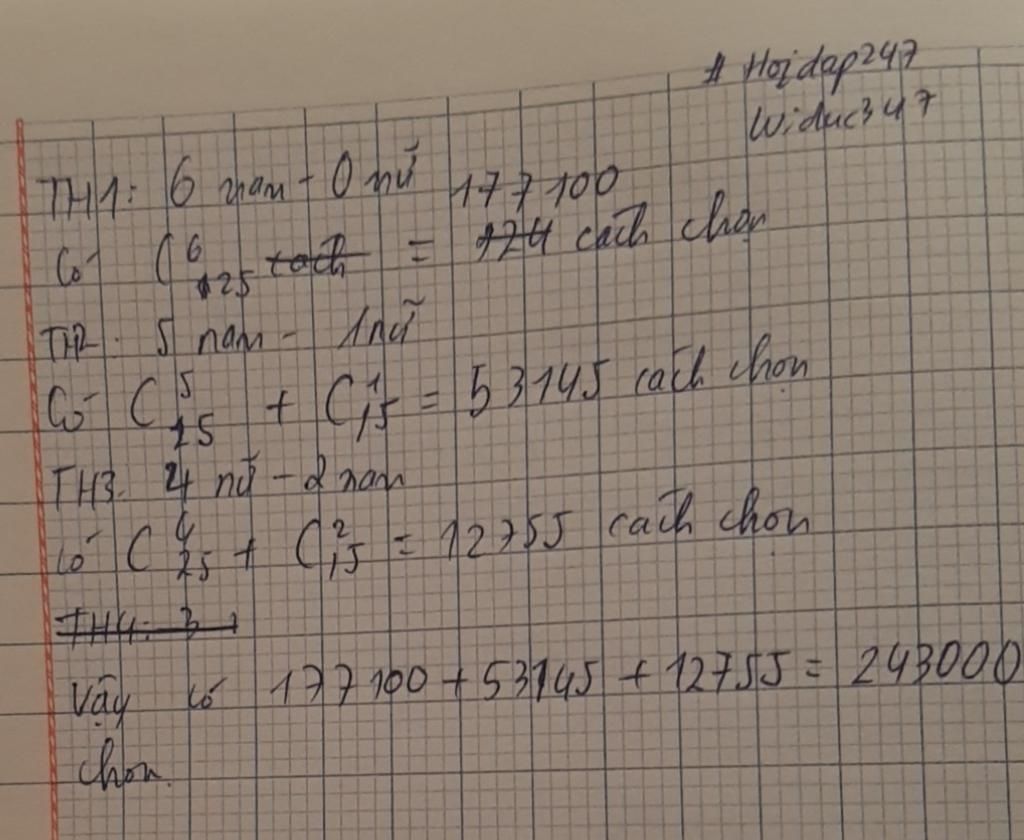 # Hoidap247
Widuc347
TH1: 6 nam - 0 nữ 177100
Có C⁶₂₅ cách = 124 cách chọn
TH2: 5 nam - 1 nữ
Có C⁵₂₅ + C¹₁₅ = 53145 cách chọn
TH3. 4 nữ - 2 nam
Có C⁴₂₅ + C²₁₅ = 12755 cách chọn
TH4: 3
Vậy có 177100 + 53145 + 12755 = 243000
chọn.